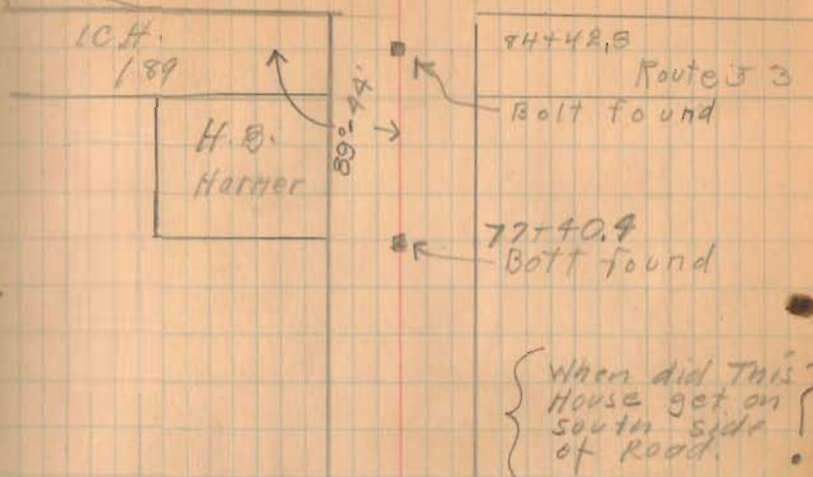 I.C.H.
189
H.B.
Harner
89°-44'
84+42.5
Route 53
Bolt found
77+40.4
Bolt found
When did This
House get on
south side
of Road.